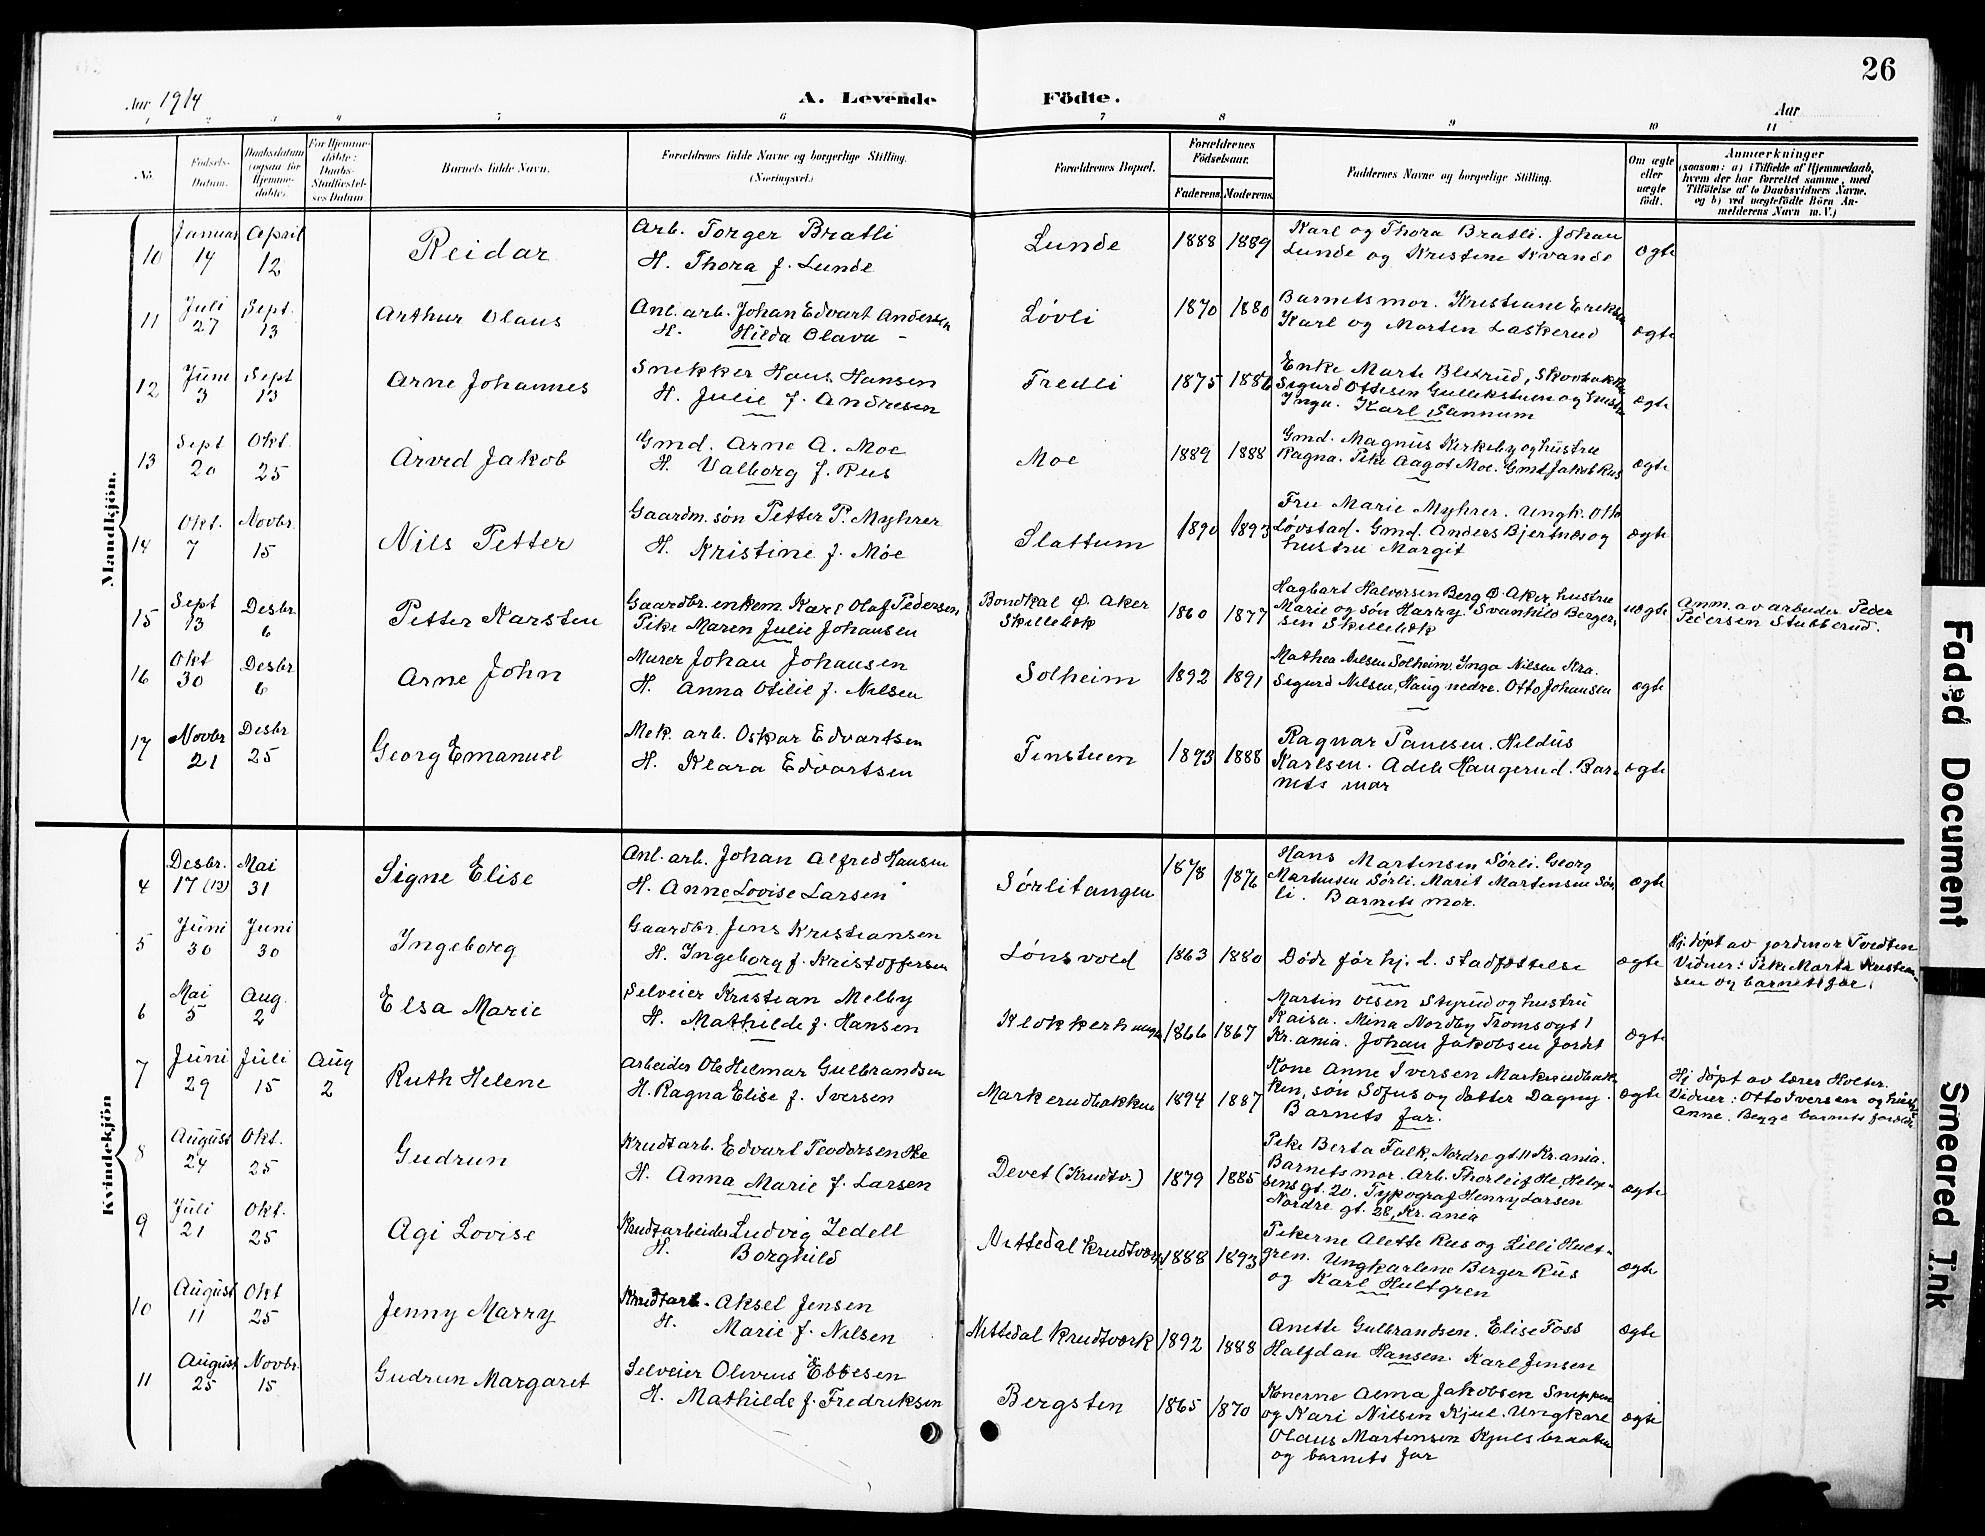 26
Aar 1914
A. Levende Födte.
Aar
1 2 3 4 5 6 7 8 9 10 11
No.
Födsels-
Datum.
Daabsdatum
(ogsaa for
Hjemme-
döbte).
For Hjemme-
döbte:
Daabs-
Stadfæstel-
ses Datum
Barnets fulde Navn.
Forældrenes fulde Navne og borgerlige Stilling.
(Næringsvei.)
Forældrenes Bopæl.
Forældrenes
Födselsaar.
Faderens. Moderens.
Faddernes Navne og borgerlige Stilling.
Om ægte
eller
uægte
født.
Anmærkninger
(saasom: a) i Tilfælde af Hjemmedaab,
hvem der har forrettet samme, med
Tilföielse af to Daabsvidners Navne,
og b) ved uægtefödte Börn An-
melderens Navn m. V.)
Mandkjön.
10 Januar 14 April 12 Reidar
Arb. Torger Bratli
H. Thora f. Lunde
Lunde 1888 1889
Karl og Thora Bratli. Johan
Lunde og Kristine Kvande
ægte
11 Juli 27 Sept. 13 Arthur Olaus
Anl. arb. Johan Edvart Andersen
H. Hilda Olava
Løvli 1870 1880
Barnets mor. Kristiane Eriksen
Karl og Morten Laskerud
ægte
12 Juni 3 Sept 13 Arne Johannes
Snekker Hans Hansen
H. Julie f. Andresen
Fredli 1875 1886
Enke Marte Blixrud, Skovbakken
Sigurd Ottesen Gullekstuen og hustru
Inga. Karl Sannum
ægte
13 Sept 20 Okt. 25 Arved Jakob
Gmd. Arne A. Moe
H. Valborg f. Rus
Moe 1889 1888
Gmd. Magnus Kirkeby og hustru
Ragna. Pike Aagot Moe. Gmd Jakob Rus
ægte
14 Okt. 7 Novbr. 15 Nils Petter
Gaardm. søn Petter P. Myhrer
H. Kristine f. Moe
Slattum 1890 1893
Fru Marie Myhrer. Ungk. Otto
Løvstad. Gmd. Anders Bjertnes og
hustru Margit
ægte
15 Sept 13 Desbr 6 Petter Karsten
Gaardbr. enkem. Karl Olaf Pedersen
Pike Maren Julie Johansen
Bondkal Ø. Aker
Skillebæk
1860 1877
Hagbart Halversen Berg Ø. Aker, hustru
Marie og søn Harry. Svanhild Berger-
sen Skillebæk
uægte
Anm. av arbeider Peder
Pedersen Stubberud.
16 Okt 30 Desbr 6 Arne John
Murer Johan Johansen
H. Anna Otilie f. Nilsen
Solheim 1892 1891
Mathea Nilsen Solheim. Inga Nilsen Kra.
Sigurd Nilsen, Haug nedre. Otto Johansen
ægte
17 Novbr 21 Desbr 25 Georg Emanuel
Mek. arb. Oskar Edvartsen
H. Klara Edvartsen
Finstuen 1893 1888
Ragnar Paulsen. Hildus
Karlsen. Adele Haugerud. Bar-
nets mor
ægte
Kvindekjön
4 Desbr. 17 (13) Mai 31 Signe Elise
Anl. arb. Johan Alfred Hansen
H. Anne Lovise Larsen
Sørlitangen 1878 1876
Hans Martensen Sørli. Georg
Martensen Sørli. Marit Martensen Sør-
li. Barnets mor.
ægte
5 Juni 30 Juni 30 Ingeborg
Gaardbr. Jens Kristiansen
H. Ingeborg f. Kristoffersen
Lønsvold 1863 1880
Døde før hj. d. stadfæstelse
ægte
Hj. døpt av jordmor Tvedten
Vidner: Pike Marta Kristian-
sen og barnets far.
6 Mai 5 Aug. 2 Elsa Marie
Selveier Kristian Melby
H. Mathilde f. Hansen
Klokkerhaugen 1866 1867
Martin Olsen Styrud og hustru
Kaisa. Mina Nordby Tromsøgt 1
Kr.ania. Johan Jakobsen Jordet
ægte
7 Juni 29 Juli 15 Aug 2 Ruth Helene
Arbeider Ole Hilmar Gulbrandsen
H. Ragna Elise f. Iversen
Markerudbakken 1894 1887
Kone Anne Iversen Markerudbak-
ken, søn Sofus og datter Dagny.
Barnets far.
ægte
Hj. døpt av lærer Holter.
Vidner: Otto Iversen og hustru
Anne. Begge barnets foreldre
8 August 24 Okt. 25 Gudrun
Krudtarb. Edvart Teodorsen He
H. Anna Marie f. Larsen
Devet (Krudtv.) 1879 1885
Pike Berta Falk, Nordre gt. 11 Kr.ania.
Barnets mor. Arb. Thorleif He, Helge-
sens gt. 20. Typograf Henry Larsen
Nordre gt. 28, Kr.ania
ægte
9 Juli 21 Okt. 25 Agi Lovise
Krudtarbeider Ludvig Zedell
H. Borghild
Nittedal Krudtværk 1888 1893
Pikerne Alette Rus og Lilli Hult-
gren. Ungkarlene Berger Rus
og Karl Hultgren
ægte
10 August 11 Okt 25 Jenny Marry
Krudtarb. Aksel Jensen
H. Marie f. Nilsen
Nittedal Krudtværk 1892 1888
Anette Gulbrandsen. Elise Foss
Halfdan Hansen. Karl Jensen
ægte
11 August 25 Novbr. 15 Gudrun Margaret
Selveier Olivius Ebbesen
H. Mathilde f. Fredriksen
Bergsten 1865 1870
Konerne Alma Jakobsen Snippen
og Kari Nilsen Kjul. Ungkarl
Olaus Martensen Kjulsbraaten
og barnets far
ægte
Faded Document
Smeared Ink